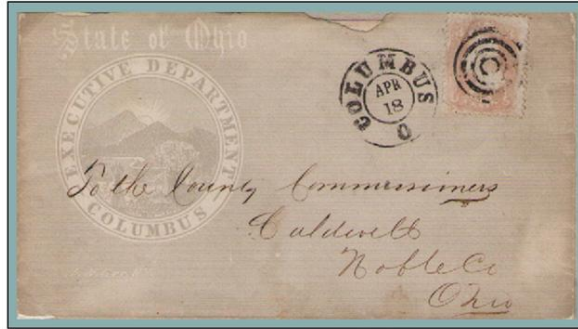 State of Ohio
EXECUTIVE DEPARTMENT
COLUMBUS
COLUMBUS O
APR
18
To the County Commissioners
Caldwell
Noble Co
Ohio